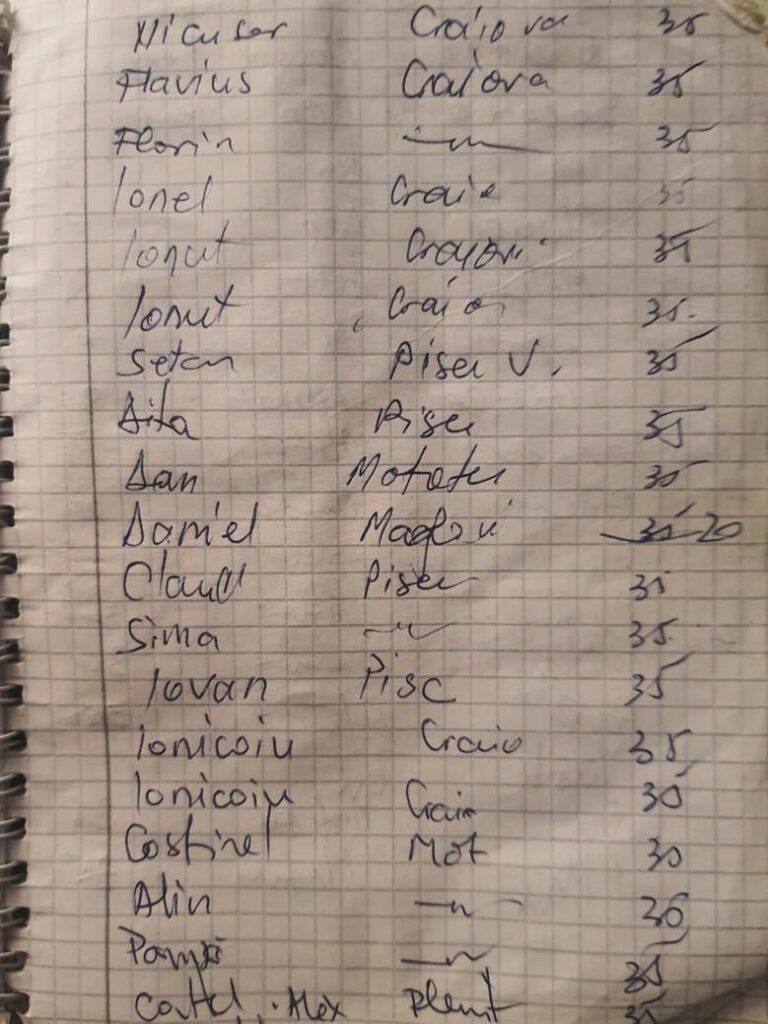 Nicusor Craiova 35
Flavius Craiova 35
Florin —"— 35
Ionel Craio 35
Ionut 35
Ionut Craio 35.
Setan Piscu V. 35
Piscu 35
Dan Motatei 35
Daniel Maglavi 35 20
Claud Piscu 35
Sima —"— 35.
Iovan Pisc 35
Ionicoiu Craio 35
Ionicoiu Craio 35
Costinel Mot 30
Alin —"—
—"— 35
Costel. Alex Plenit 35